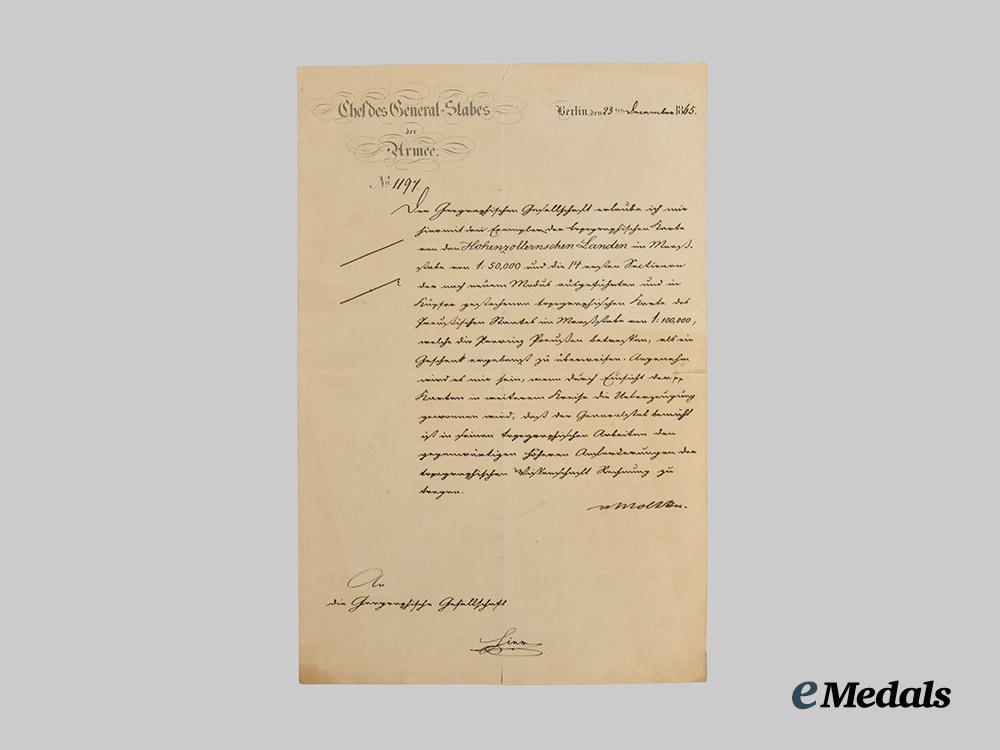 Chef des General-Stabes
der
Armee.
Berlin, den 23ten December 1865.
No 1197.
Der Geographischen Gesellschaft erlaube ich mir
hiermit drei Exemplare der topographischen Karte
von den Hohenzollernschen Landen im Maaß-
stabe von 1:50,000 und die 14 ersten Sectionen
der nach neuem Modus ausgeführten und in
Kupfer gestochenen topographischen Karte des
Preußischen Staates im Maaßstabe von 1:100,000,
welche die Provinz Preußen betreffen, als ein
Geschenk ergebenst zu überweisen. Angenehm
wird es mir sein, wenn durch Einsicht der
Karten in weiterem Kreise die Ueberzeugung
gewonnen wird, daß der Generalstab bemüht
ist in seinen topographischen Arbeiten den
gegenwärtigen höheren Anforderungen der
topographischen Wissenschaft Rechnung zu
tragen.
v Moltke.
An
die Geographische Gesellschaft
Hier
eMedals